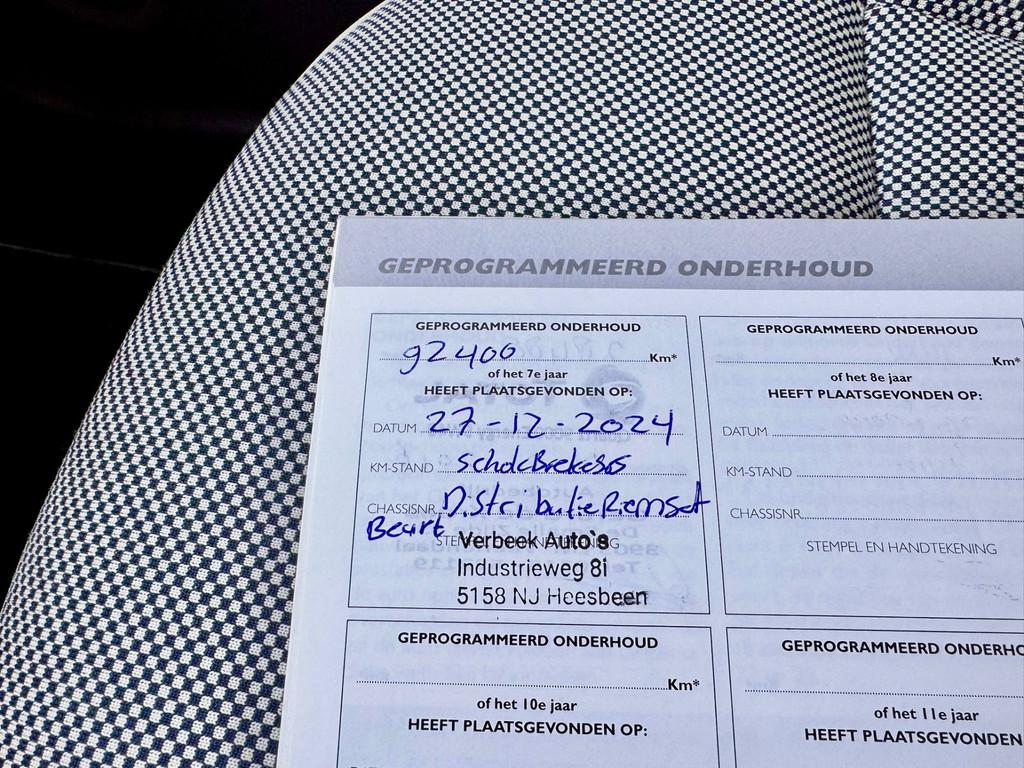 GEPROGRAMMEERD ONDERHOUD
GEPROGRAMMEERD ONDERHOUD
92400 Km*
of het 7e jaar
HEEFT PLAATSGEVONDEN OP:
DATUM 27-12-2024
KM-STAND
CHASSISNR. Distributie Riemset
Beurt
Verbeek Auto's
Industrieweg 8i
5158 NJ Heesbeen
GEPROGRAMMEERD ONDERHOUD
Km*
of het 8e jaar
HEEFT PLAATSGEVONDEN OP:
DATUM
KM-STAND
CHASSISNR.
STEMPEL EN HANDTEKENING
GEPROGRAMMEERD ONDERHOUD
Km*
of het 10e jaar
HEEFT PLAATSGEVONDEN OP:
GEPROGRAMMEERD ONDERHO
of het 11e jaar
HEEFT PLAATSGEVONDEN